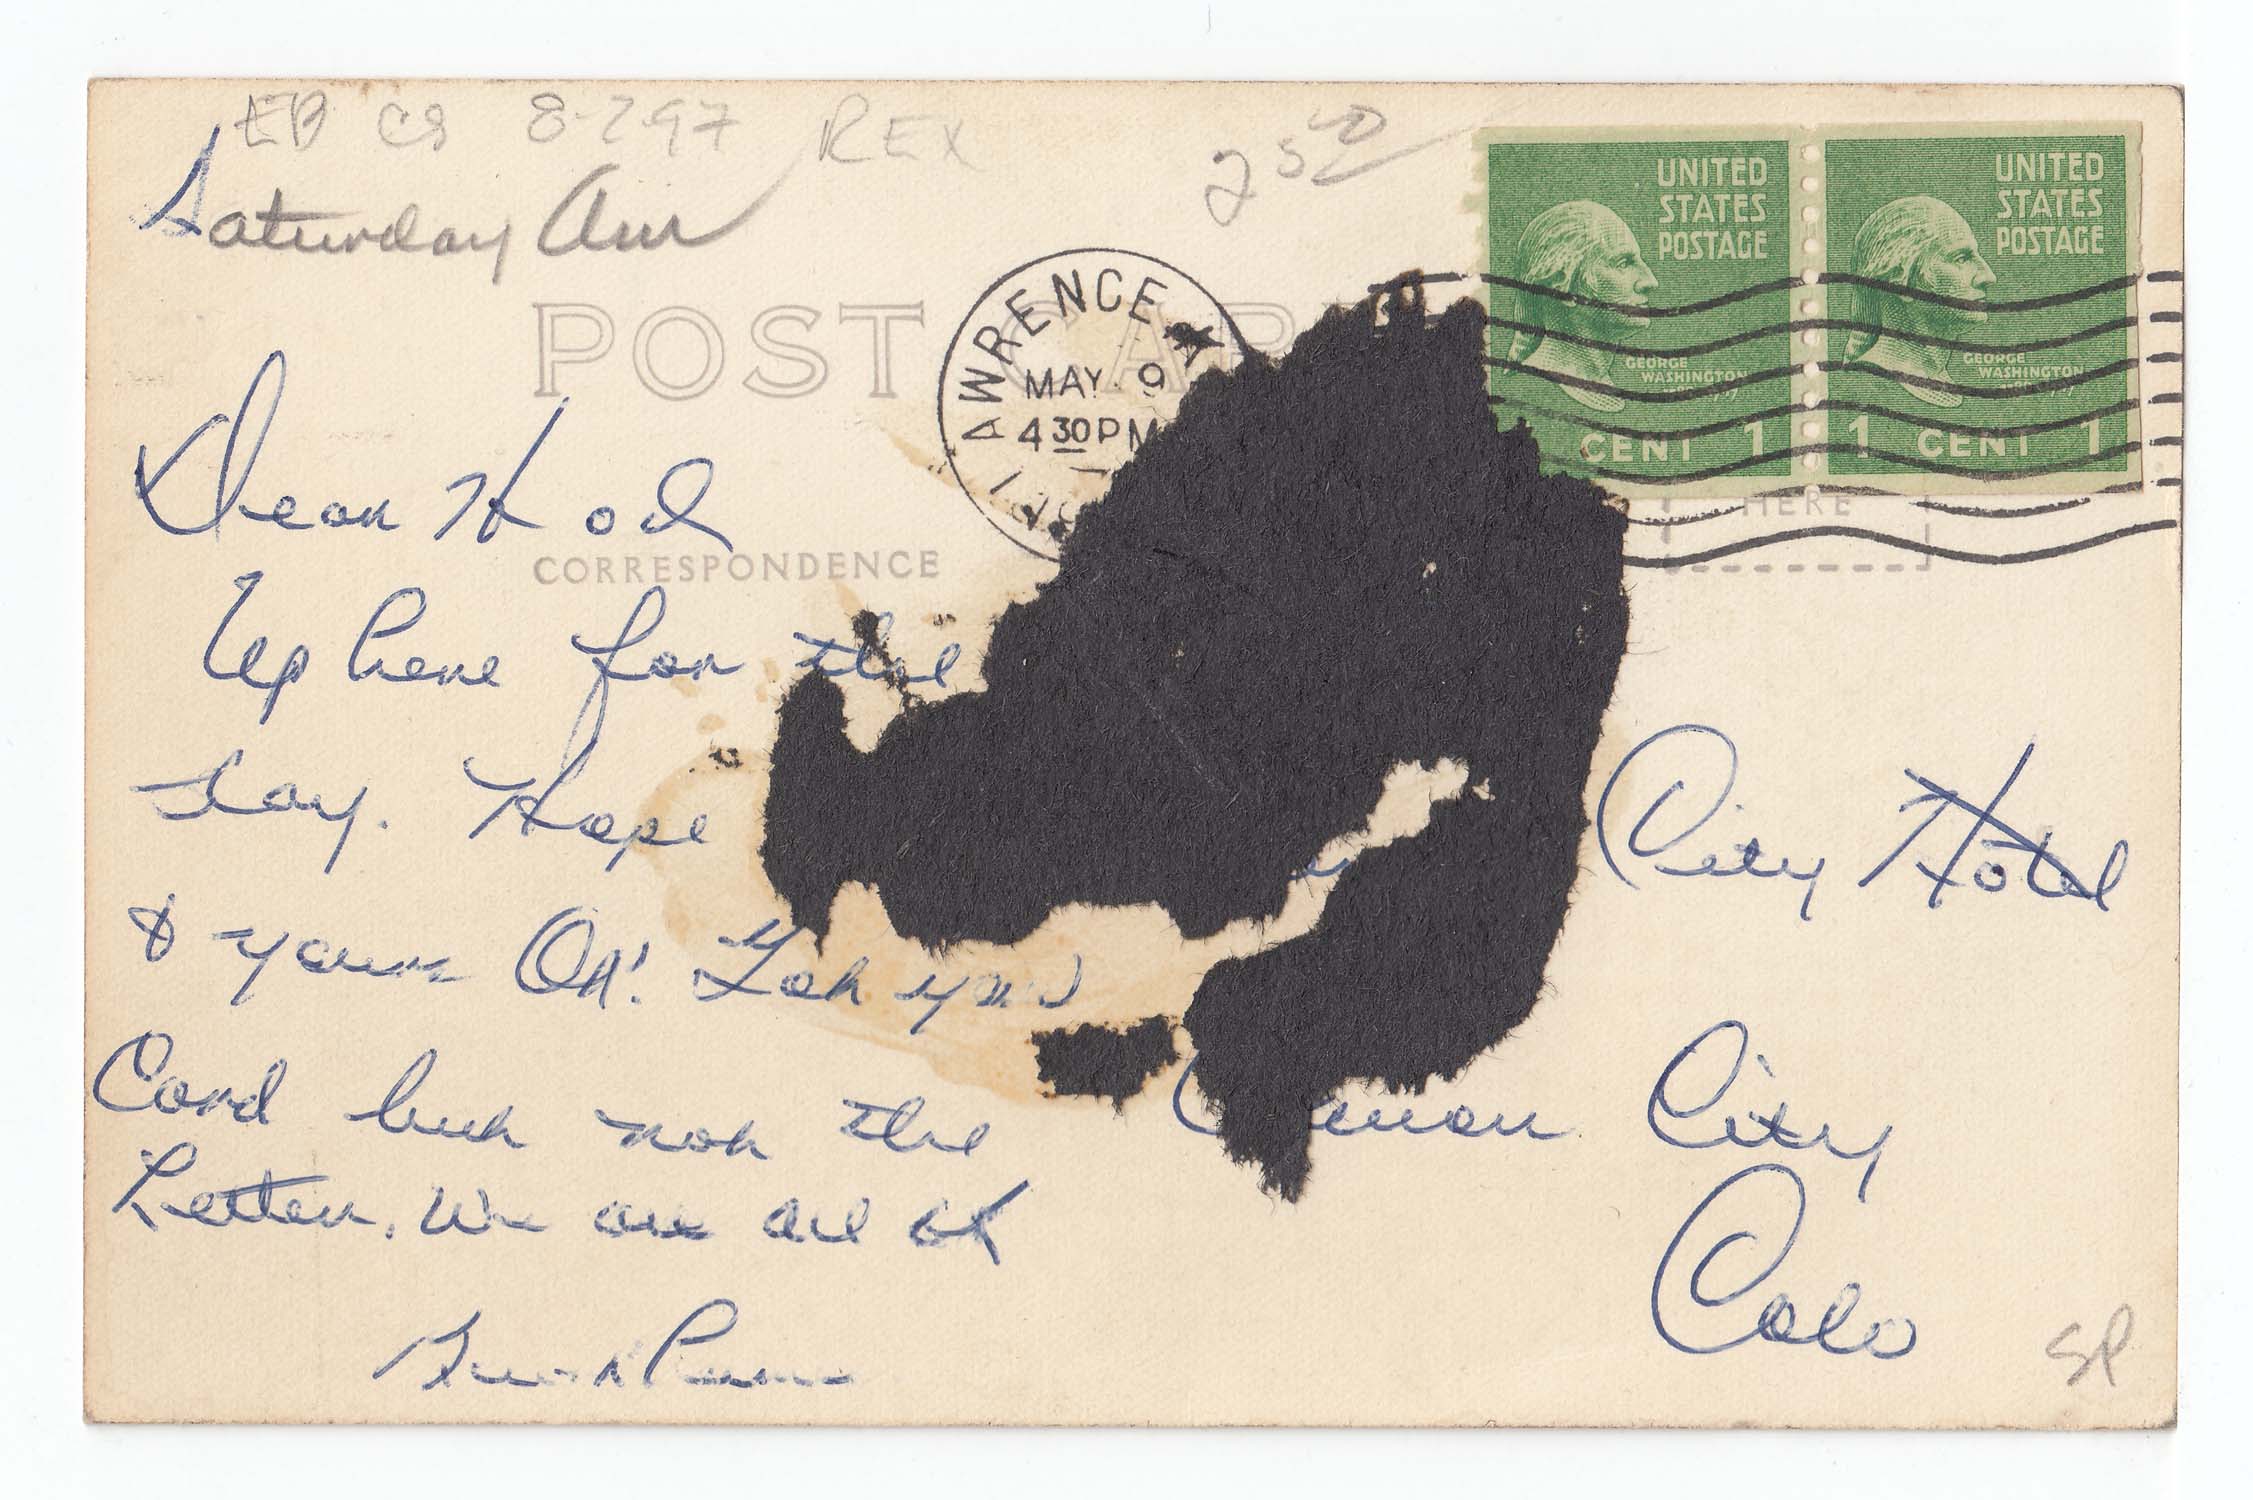 EB CS 8-297 REX
2 50
Saturday Am
UNITED STATES POSTAGE
GEORGE WASHINGTON
CENT 1
UNITED STATES POSTAGE
GEORGE WASHINGTON
1 CENT 1
POST CAR
LAWRENCE
MAY 9
4 30 PM
HERE
Dear Hod
CORRESPONDENCE
Up here for the
day. Hope
& yours OK! Got your
Card but not the
Letter. We are all ok
City Hotel
Canon City
Colo
SP